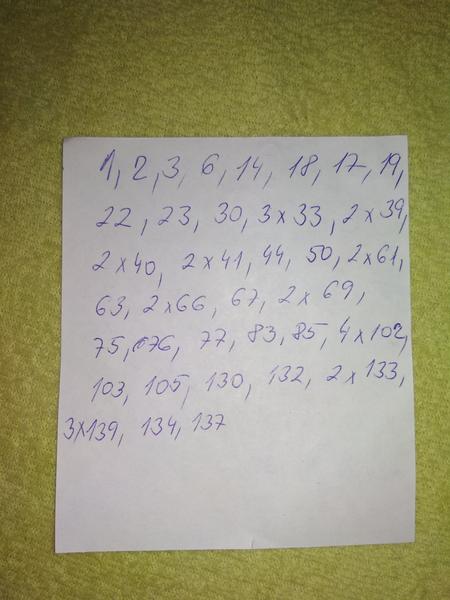 1, 2, 3, 6, 14, 18, 17, 19,
22, 23, 30, 3x33, 2x39,
2x40, 2x41, 44, 50, 2x61,
63, 2x66, 67, 2x69,
75, 076, 77, 83, 85, 4x102,
103, 105, 130, 132, 2x133,
3x139, 134, 137